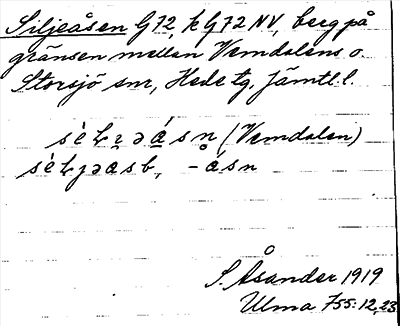 Siljeåsen G72, k G72 NV, berg på
gränsen mellan Vemdalens o.
Storsjö snr, Hede tg. Jämtl. l.
(Vemdalen)
S. Åsander 1919
Ulma 755:12,23